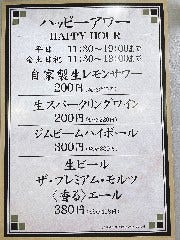 ハッピーアワー
HAPPY HOUR
平日 11:30~19:00まで
金土日祝 11:30~18:00まで
自家製生レモンサワー
200円
生スパークリングワイン
200円
ジムビームハイボール
300円
生ビール
ザ・プレミアム・モルツ
〈香る〉エール
380円